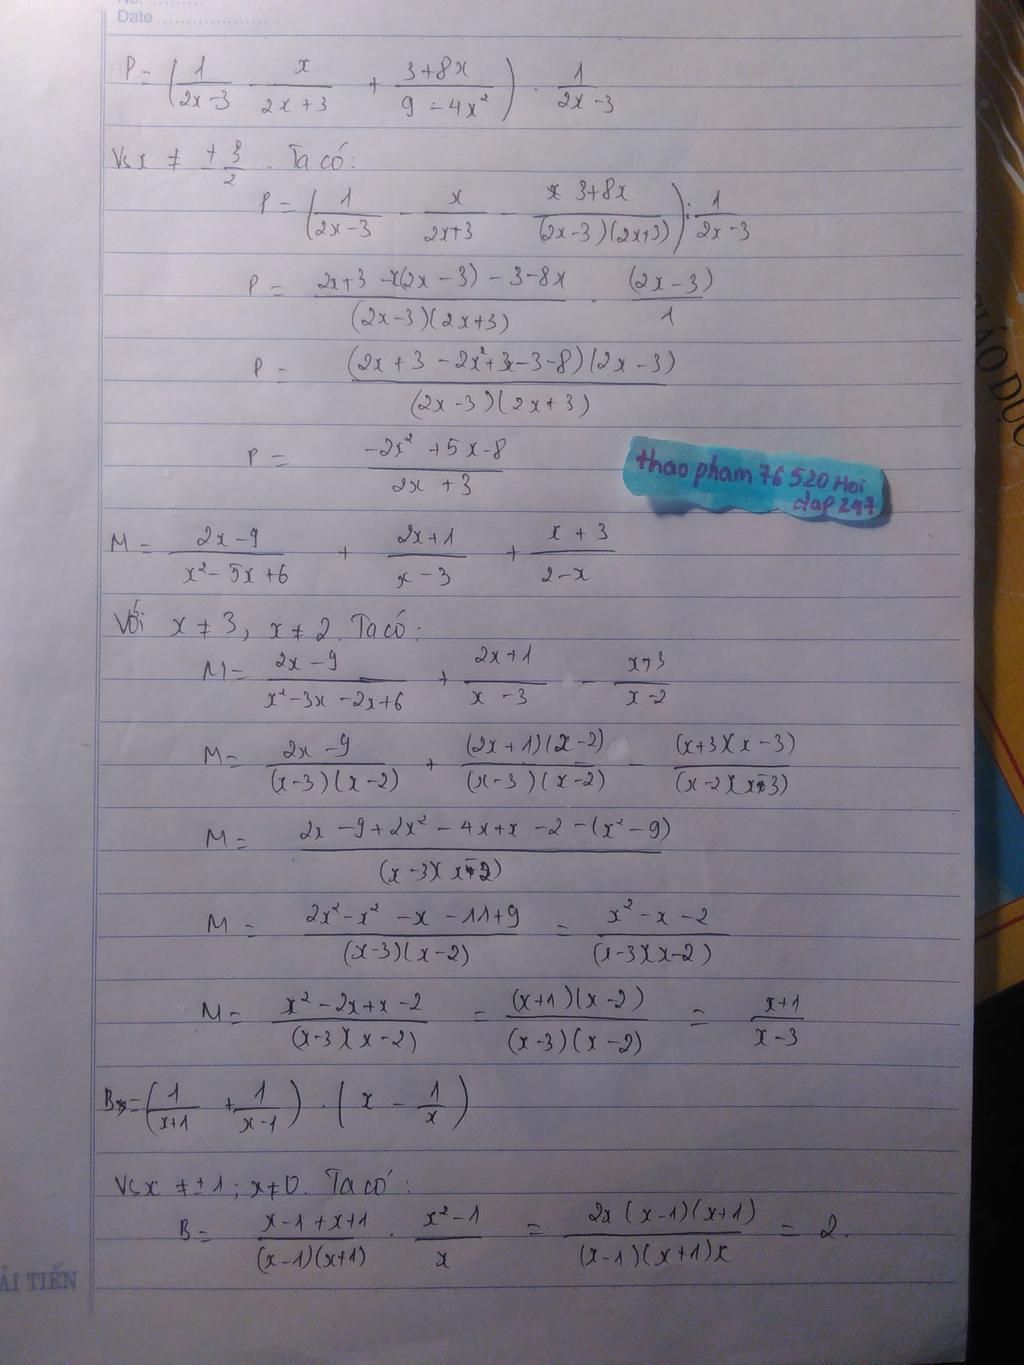 No. .........
Date ..................
P = (1/(2x-3) - x/(2x+3) + (3+8x)/(9-4x²)) . 1/(2x-3)
Vs x ≠ ± 3/2 . Ta có:
P = (1/(2x-3) - x/(2x+3) - (3+8x)/((2x-3)(2x+3))) : 1/(2x-3)
P = (2x+3 -x(2x-3) - 3-8x)/((2x-3)(2x+3)) . (2x-3)/1
P = ((2x+3 - 2x²+3x-3-8)(2x-3))/((2x-3)(2x+3))
P = (-2x² +5x-8)/(2x+3)
thao pham 76 520 Hoi
dap 247
M = (2x-9)/(x²-5x+6) + (2x+1)/(x-3) + (x+3)/(2-x)
Với x ≠ 3, x ≠ 2. Ta có:
M = (2x-9)/(x²-3x-2x+6) + (2x+1)/(x-3) - (x+3)/(x-2)
M = (2x-9)/((x-3)(x-2)) + ((2x+1)(x-2))/((x-3)(x-2)) - ((x+3)(x-3))/((x-2)(x-3))
M = (2x-9+2x²-4x+x-2-(x²-9))/((x-3)(x-2))
M = (2x²-x²-x-11+9)/((x-3)(x-2)) = (x²-x-2)/((x-3)(x-2))
M = (x²-2x+x-2)/((x-3)(x-2)) = ((x+1)(x-2))/((x-3)(x-2)) = (x+1)/(x-3)
B = (1/(x+1) + 1/(x-1)) . (x - 1/x)
Vs x ≠ ±1; x≠0. Ta có:
B = (x-1+x+1)/((x-1)(x+1)) . (x²-1)/x = (2x(x-1)(x+1))/((x-1)(x+1)x) = 2.
ẢI TIẾN
ÁO DỤC